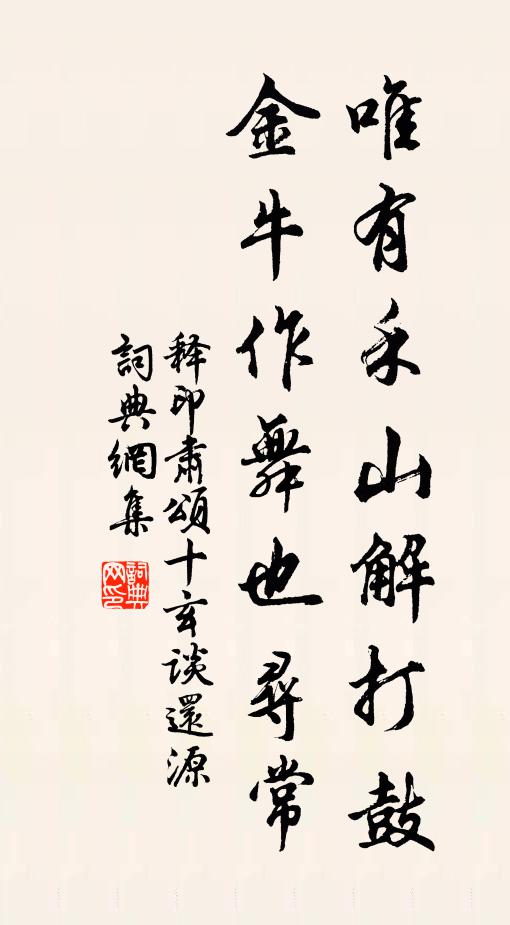 唯有禾山解打鼓
金牛作舞也尋常
释印肅頌十玄談還源
詞典網集
詞典网印